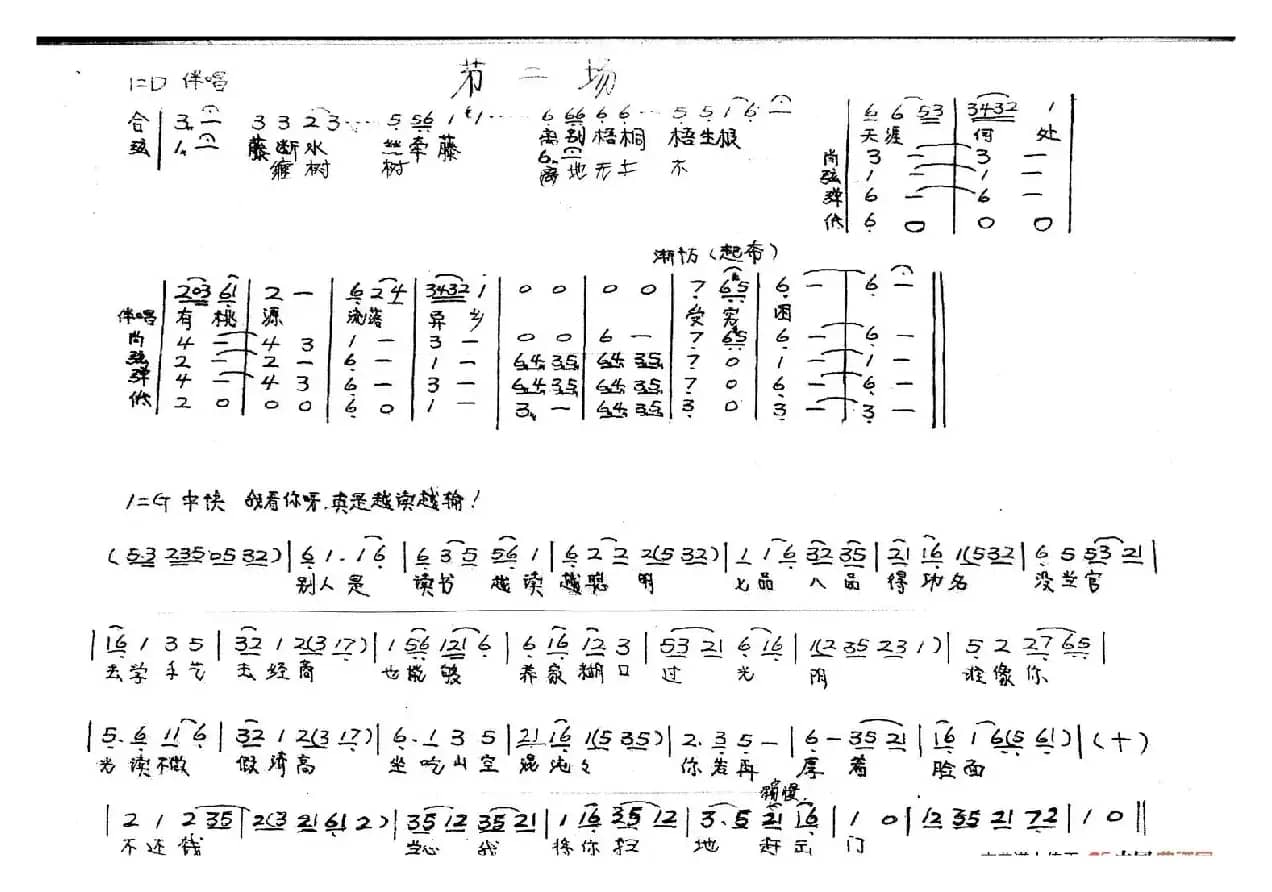 第二场
1=D 伴唱
合弦
3 3 2 3 ···· 5 56 1 1 ···· 6 66 6 6 ··· 5 5 1 6 —
藤断水 丝牵藤 离别梧桐 梧生根
树 树 离地无土 不
6 6 53 | 3432 1 |
天涯 何 处
尚 3 — | 3 —
弦 1 — | 1 —
弹 6 — | 6 —
低 6 0 | 0 0
渐慢(起布)
203 61 | 2 — | 6 24 | 3432 1 | 0 0 | 0 0 | 7 65 | 6 — | 6 —
伴唱 有 桃 源 流落 异 乡 受 困
尚 4 — | 4 3 | 1 — | 3 — | 0 0 | 6 — | 7 65 | 6 — | 6 —
弦 2 — | 2 — | 6 — | 1 — | 64 35 | 64 35 | 7 0 | 1 — | 1 —
弹 4 — | 4 3 | 6 — | 3 — | 64 35 | 64 35 | 7 0 | 6 — | 6 —
低 2 0 | 0 0 | 6 0 | 1 — | 3 — | 64 35 | 3 0 | 3 — | 3 —
1=G 中快 我看你呀,真是越读越输!
(5·3 235 0532) | 6 1 · 1 6 | 6 3 5 56 1 | 6 2 2 2(532) | 1 1 6 32 35 | 21 16 1(532 | 6 5 53 21 |
别人是 读书 越读越聪 明 七品 八品 得功名 没当官
| 16 1 3 5 | 32 1 2(3 17) | 1 56 121 6 | 6 16 12 3 | 53 21 6 16 | 1(2 35 23 1) | 5 2 27 65 |
去学手艺 去经商 也能够 养家糊口 过 光 阴 谁像你
| 5· 6 11 6 | 32 1 2(3 17) | 6· 1 3 5 | 21 16 1(5 35) | 2· 3 5 — | 6 — 35 21 | 16 1 6(5 61) | (十)
光读不做 假清高 坐吃山空 你若再 厚 着 脸面
稍慢
| 2 1 2 35 | 2(3 21 61 2) | 35 12 35 21 | 1 16 35 12 | 3· 5 21 16 | 1 0 | 12 35 21 72 | 1 0 ||
不还钱 当心 我 将你扫 地 赶出 门